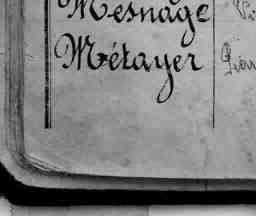 Mesnage
Métayer